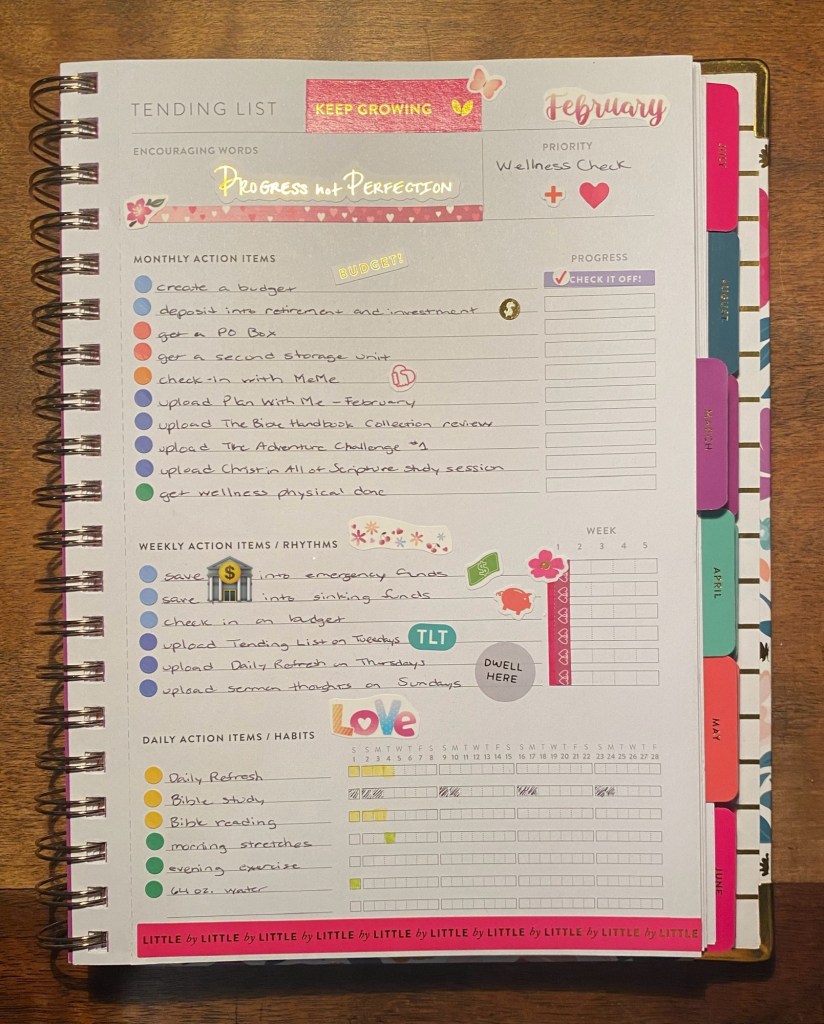 TENDING LIST
KEEP GROWING
February
ENCOURAGING WORDS
PROGRESS not PERFECTION
PRIORITY
Wellness Check
MONTHLY ACTION ITEMS
BUDGET!
PROGRESS
CHECK IT OFF!
create a budget
deposit into retirement and investment $
get a PO Box
get a second storage unit
check-in with MeMe
upload Plan With Me - February
upload The Bible Handbook Collection review
upload The Adventure Challenge #1
upload Christ in All of Scripture study session
get wellness physical done
WEEKLY ACTION ITEMS / RHYTHMS
WEEK
1 2 3 4 5
save $ into emergency funds $
save into sinking funds
check in on budget
upload Tending List on Tuesdays TLT
upload Daily Refresh on Thursdays
upload sermon thoughts on Sundays
DWELL
HERE
LOVe
DAILY ACTION ITEMS / HABITS
S S M T W T F S S M T W T F S S M T W T F S S M T W T F
1 2 3 4 5 6 7 8 9 10 11 12 13 14 15 16 17 18 19 20 21 22 23 24 25 26 27 28
Daily Refresh
Bible study
Bible reading
morning stretches
evening exercise
64 oz. water
LITTLE by LITTLE by LITTLE by LITTLE by LITTLE by LITTLE by LITTLE by LITTLE by LITTLE by LITTLE
JULY
AUGUST
MARCH
APRIL
MAY
JUNE